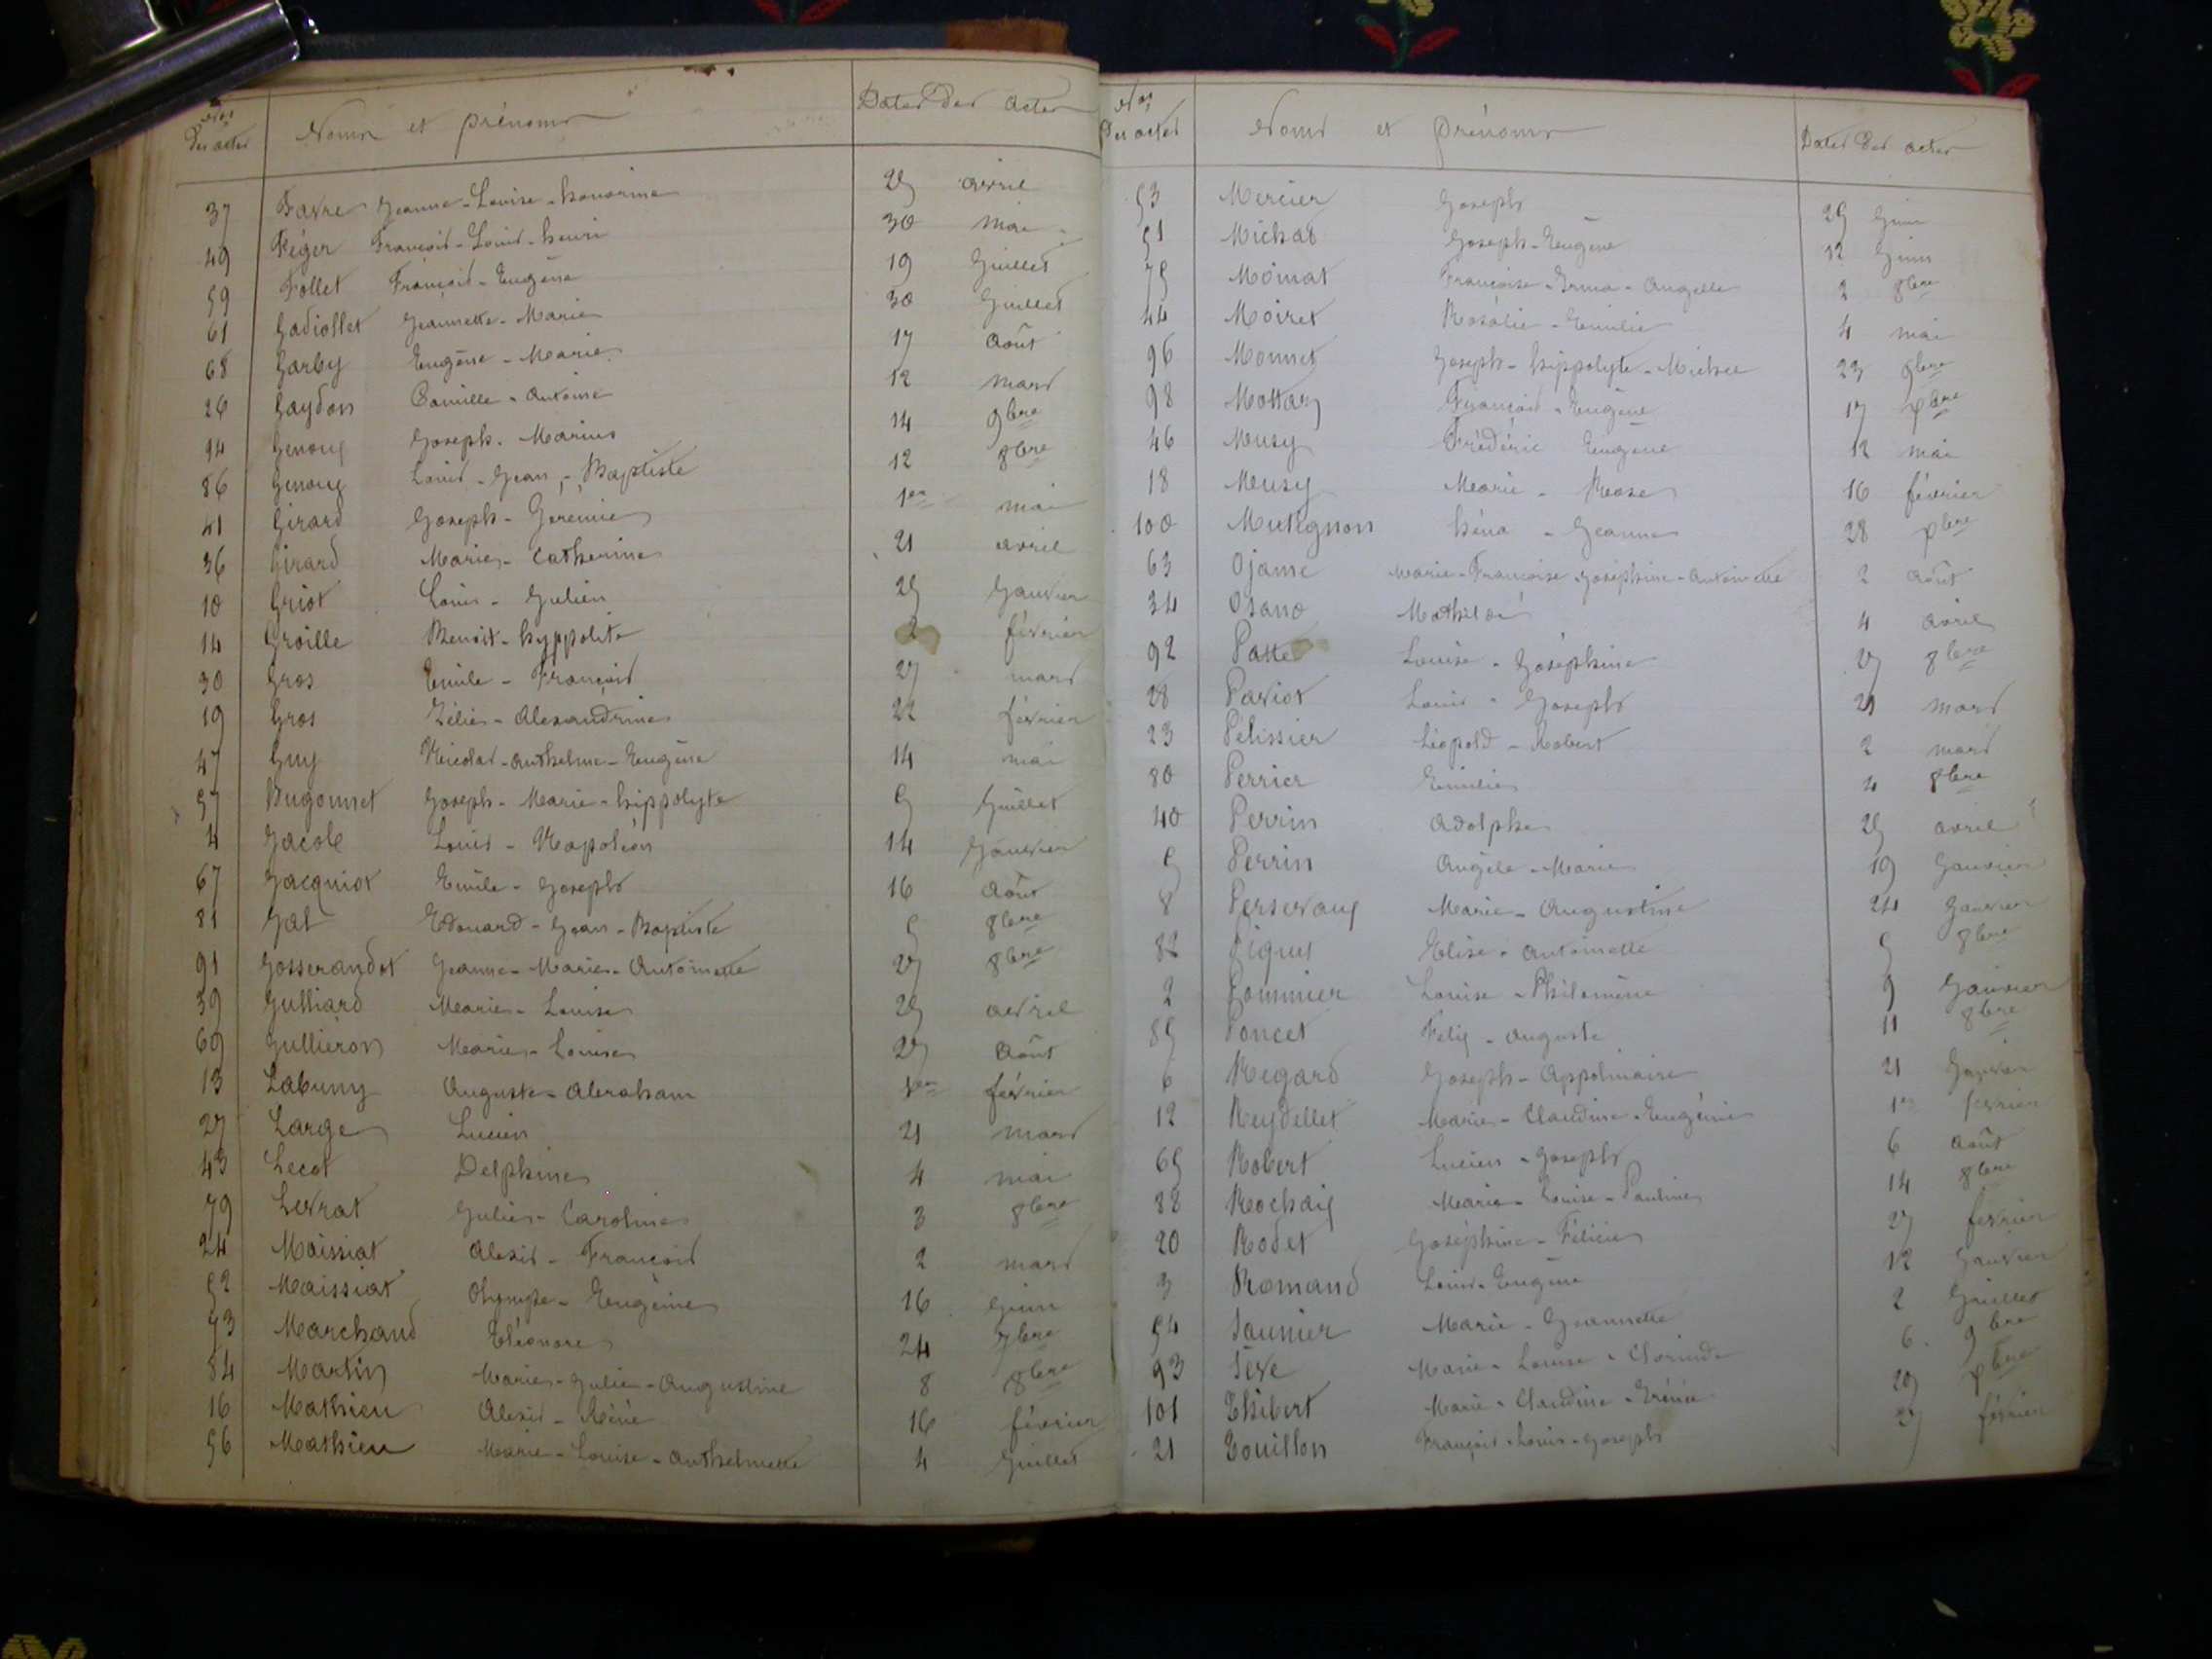 Nos des actes Noms et prénoms Dates des actes
37 Favre Jeanne-Louise-honorine 25 avril
49 Féger François-Louis-henri 30 mai
59 Follet François-Eugène 19 Juillet
61 Gadiollet Jeannette-Marie 30 Juillet
68 Garby Eugène-Marie 17 Août
26 Gaydon Camille-Antoine 12 mars
94 Genoux Joseph-Marius 14 9bre
86 Genoux Louis-Jean-Baptiste 12 8bre
41 Girard Joseph-Jeremie 1er mai
36 Girard Marie-Catherine 21 avril
10 Griot Louis-Julien 25 Janvier
14 Groille Benoit-hyppolite 2 février
30 Gros Emile-François 27 mars
19 Gros Zélie-Alexandrine 22 février
47 Guy Nicolas-Anthelme-Eugène 14 mai
57 Hugonnet Joseph-Marie-hippolyte 5 Juillet
4 Jacob Louis-Napoléon 14 Janvier
67 Jacquiot Emile-Joseph 16 Août
81 Jal Edouard-Jean-Baptiste 5 8bre
91 Josserandot Jeanne-Marie-Antoinette 27 8bre
39 Julliard Marie-Louise 25 avril
69 Jullieron Marie-Louise 27 Août
13 Labuny Auguste-Abraham 1er février
27 Large Lucien 21 mars
43 Lecot Delphine 4 mai
79 Levrat Julie-Caroline 3 8bre
24 Maissiat Alexis-François 2 mars
52 Maissiat Olympe-Eugénie 16 Juin
73 Marchand Eléonore 24 7bre
84 Martin Marie-Julie-Augustine 8 8bre
16 Mathieu Alexis-Réné 16 février
56 Mathieu Marie-Louise-Anthelmette 4 Juillet
Nos des actes Noms et prénoms Dates des actes
53 Mercier Joseph 25 Juin
51 Michas Joseph-Eugène 12 Juin
75 Moinat Françoise-Irma-Angelle 2 8bre
44 Moiret Rosalie-Emilie 4 mai
96 Monnet Joseph-hippolyte-Michel 23 9bre
98 Mottaz François-Eugène 17 xbre
46 Musy Frédéric Eugène 12 mai
18 Musy Marie-Rose 16 février
100 Mutignon héna-Jeanne 28 xbre
63 Ojame Marie-Françoise-Joséphine-Antoinette 2 Août
34 Osano Mathilde 4 avril
92 Patte Louise-Joséphine 27 8bre
28 Paviot Louis-Joseph 21 mars
23 Pélissier Léopold-Robert 2 mars
80 Perrier Emilie 4 8bre
40 Perrin Adolphe 25 avril
5 Perrin Angèle-Marie 19 Janvier
8 Persevaux Marie-Augustine 24 Janvier
82 Piquet Elise-Antoinette 5 8bre
2 Pommier Louise-Philomène 9 Janvier
85 Poncet Felix-Auguste 11 8bre
6 Regard Joseph-Appolinaire 21 Janvier
12 Reydellet Marie-Claudine-Eugénie 1er février
65 Robert Lucien-Joseph 6 Août
88 Rochaix Marie-Louise-Pauline 14 8bre
20 Rodet Joséphine-Félicie 27 février
3 Romand Louis-Eugène 12 Janvier
54 Saunier Marie-Jeannette 2 Juillet
93 Sève Marie-Louise-Clorinde 6 9bre
101 Thibert Marie-Claudine-Irénée 29 xbre
21 Touillon François-Louis-Joseph 27 février